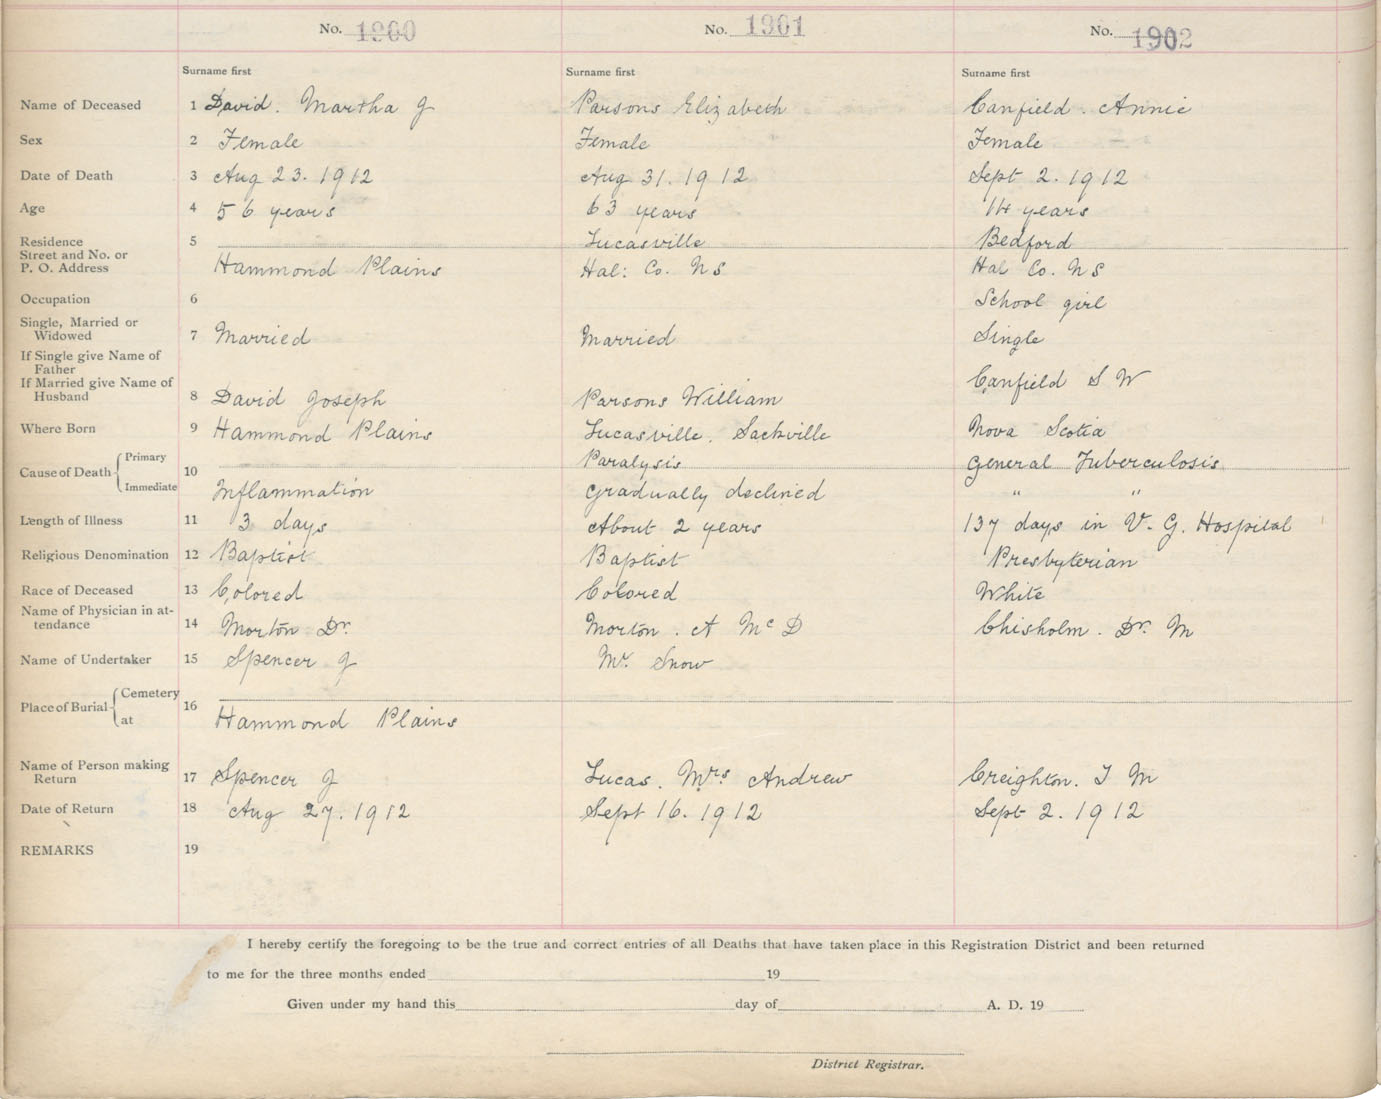 No. 1900 No. 1901 No. 1902
Surname first Surname first Surname first
Name of Deceased 1 David. Martha J Parsons Elizabeth Canfield. Annie
Sex 2 Female Female Female
Date of Death 3 Aug 23. 1912 Aug 31. 1912 Sept 2. 1912
Age 4 56 years 63 years 14 years
Residence 5 Lucasville Bedford
Street and No. or
P. O. Address Hammond Plains Hal: Co. NS Hal Co. NS
Occupation 6 School girl
Single, Married or
Widowed 7 Married Married Single
If Single give Name of
Father
If Married give Name of Canfield S W
Husband 8 David Joseph Parsons William
Where Born 9 Hammond Plains Lucasville. Sackville Nova Scotia
Primary Paralysis General Tuberculosis
Cause of Death 10
Immediate Inflammation Gradually declined " "
Length of Illness 11 3 days About 2 years 137 days in V. G. Hospital
Religious Denomination 12 Baptist Baptist Presbyterian
Race of Deceased 13 Colored Colored White
Name of Physician in at-
tendance 14 Morton Dr. Morton. A McD Chisholm. Dr. M
Name of Undertaker 15 Spencer J Mr. Snow
Cemetery
Place of Burial 16
at Hammond Plains
Name of Person making
Return 17 Spencer J Lucas. Mrs Andrew Creighton. I M
Date of Return 18 Aug 27. 1912 Sept 16. 1912 Sept 2. 1912
REMARKS 19
I hereby certify the foregoing to be the true and correct entries of all Deaths that have taken place in this Registration District and been returned
to me for the three months ended 19
Given under my hand this day of A. D. 19
District Registrar.